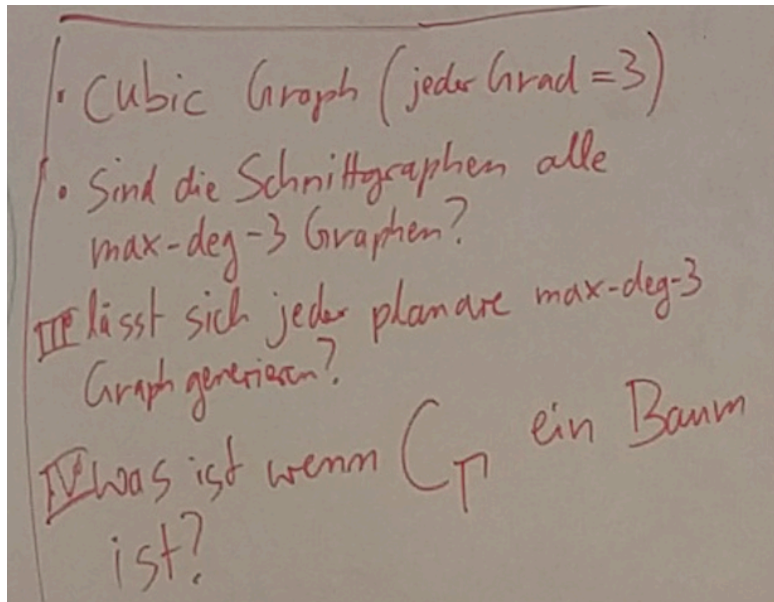 • Cubic Graph (jeder Grad = 3)
• Sind die Schnittgraphen alle
max-deg-3 Graphen?
III lässt sich jeder planare max-deg-3
Graph generieren?
IV was ist wenn C_Γ ein Baum
ist?